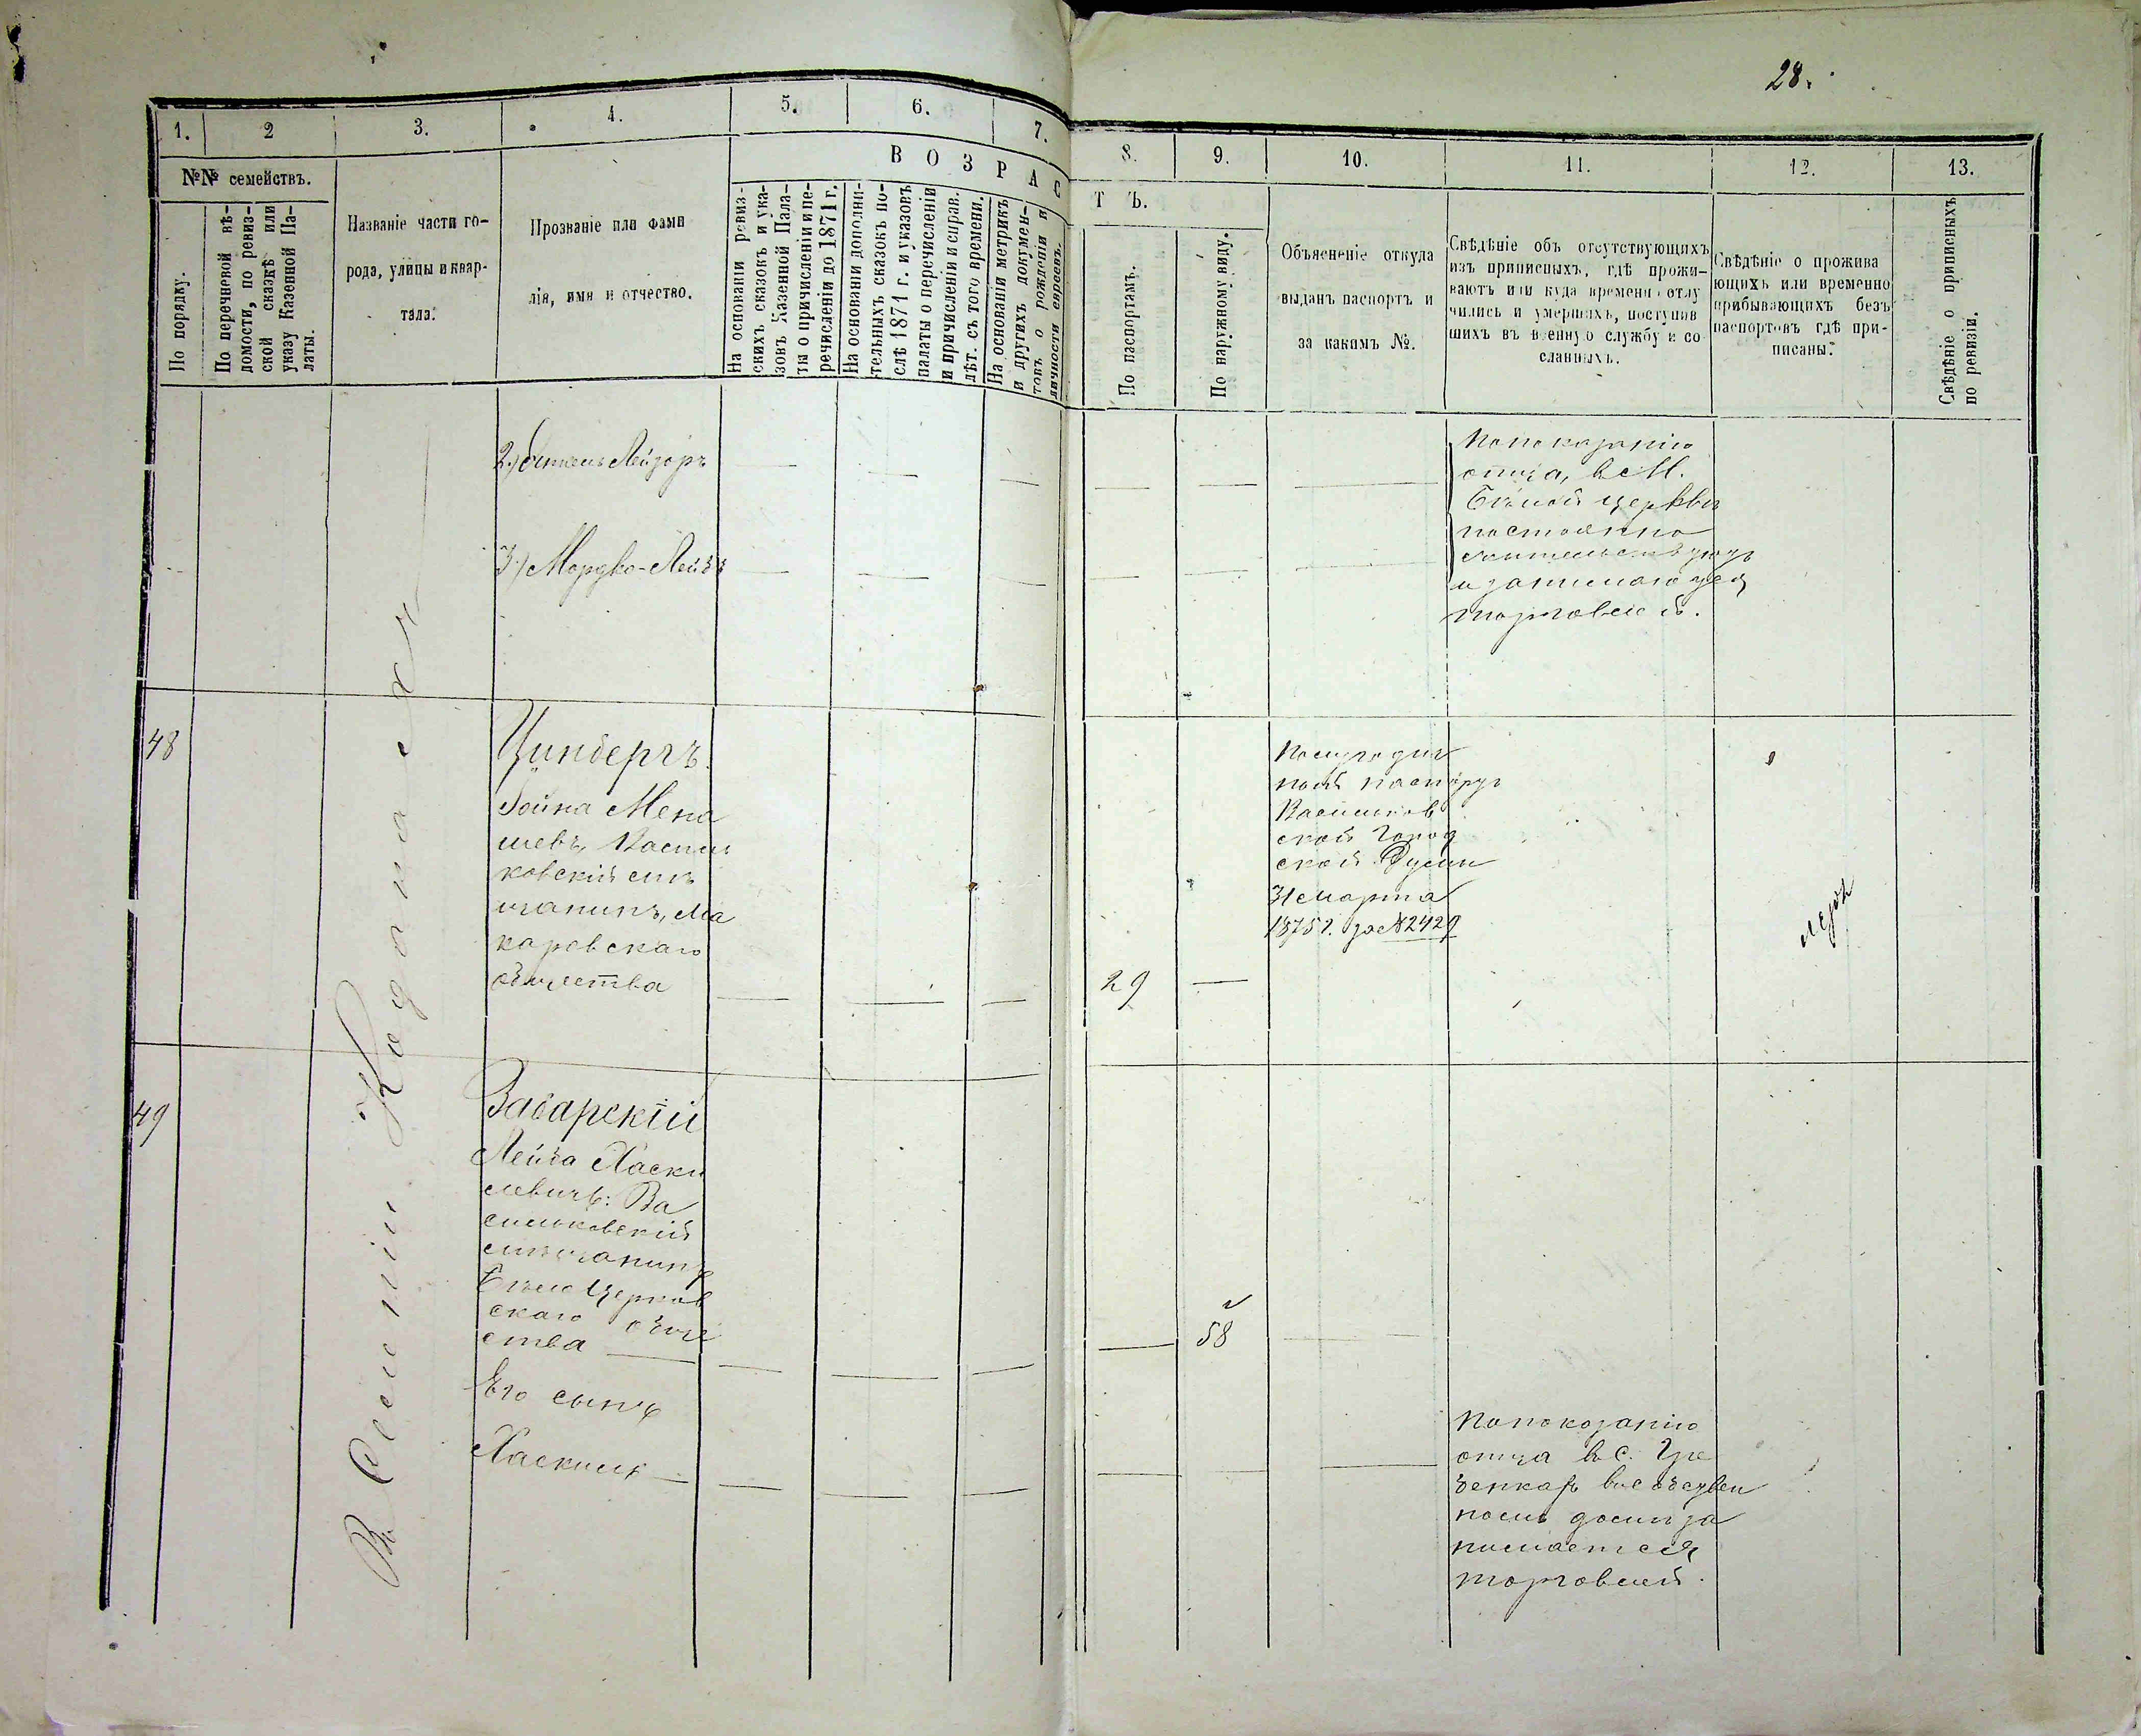 28.
1.
2
3.
4.
5.
6.
7.
8.
9.
10.
11.
12.
13.
№№ семействъ.
ВОЗРАС
ТЪ.
По порядку.
По перечневой вѣ-
домости, по ревиз-
ской сказкѣ или
указу Казенной Па-
латы.
Названіе части го-
рода, улицы и квар-
тала.
Прозваніе или фами
лія, имя и отчество.
На основаніи ревиз-
скихъ сказокъ и ука-
зовъ Казенной Пала-
ты о причисленіи и пе-
речисленіи до 1871 г.
На основаніи дополни-
тельныхъ сказокъ по-
слѣ 1871 г. и указовъ
палаты о перечисленіи
и причисленіи и справ.
лѣт. съ того времени.
На основаніи метрикъ
и другихъ докумен-
товъ о рожденіи и
личности евреевъ.
По паспортамъ.
По наружному виду.
Объясненіе откуда
выданъ паспортъ и
за какимъ №.
Свѣдѣніе объ отсутствующихъ
изъ приписныхъ, гдѣ прожи-
ваютъ или куда времени отлу
чились и умершихъ, поступив
шихъ въ военную службу и со
сланныхъ.
Свѣдѣніе о прожива
ющихъ или временно
прибывающихъ безъ
паспортовъ гдѣ при-
писаны.
Свѣдѣніе о приписныхъ
по ревизіи.
2.) Лейзоръ
3) Мордко-Лейбъ
По показанію
отца, въ М.
Бѣлой церкви
постоянно
жительствуютъ
и занимаются
торговлей.
Въ Селеніи
48
Цинбергъ.
Іойна Мена
шевъ, Василь
ковскій мѣ
щанинъ, Ма
каровскаго
общества
29
По полугодич
ной паспорту
Васильков
ской Город
ской Думы
31 марта
1875 г. за № 2429
49
Забарскій
Лейба Хаски
левичъ: Ва
сильковскій
мѣщанинъ
Бѣлоцерков
скаго обще
ства
58
Его сынъ
Хаскель
По показанію
отца въ с. Гре
бенкахъ въ собствен
номъ домѣ за
нимается
торговлей.